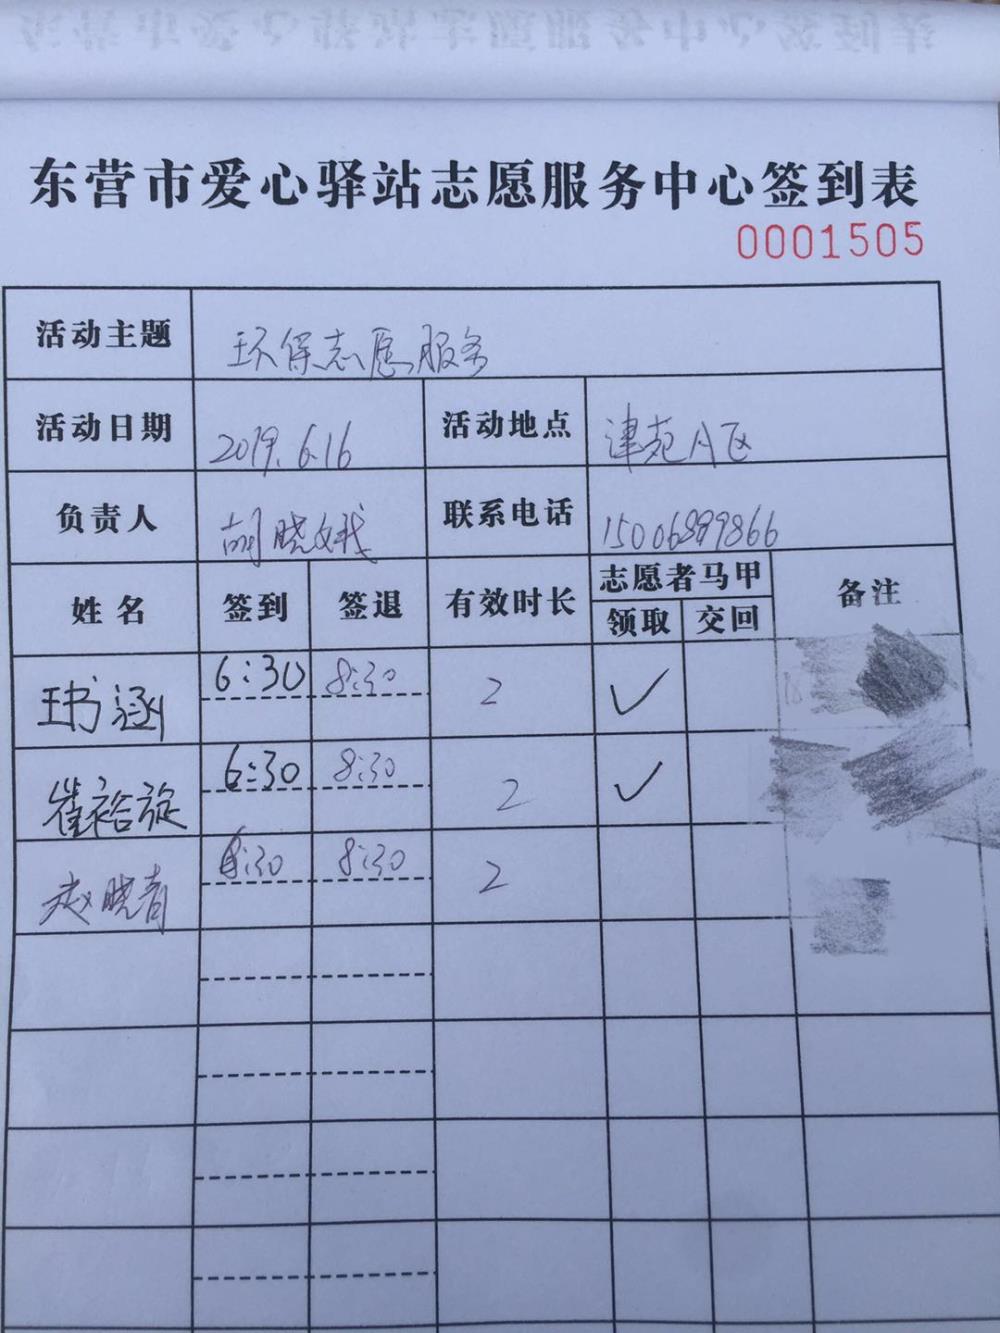 东营市爱心驿站志愿服务中心签到表
0001505
活动主题 环保志愿服务
活动日期 2019.6.16 活动地点 津苑A区
负责人 胡晓娥 联系电话 15006899866
姓名 签到 签退 有效时长 志愿者马甲 备注
领取 交回
王书涵 6:30 8:30 2 ✓
崔裕旋 6:30 8:30 2 ✓
赵晓青 6:30 8:30 2